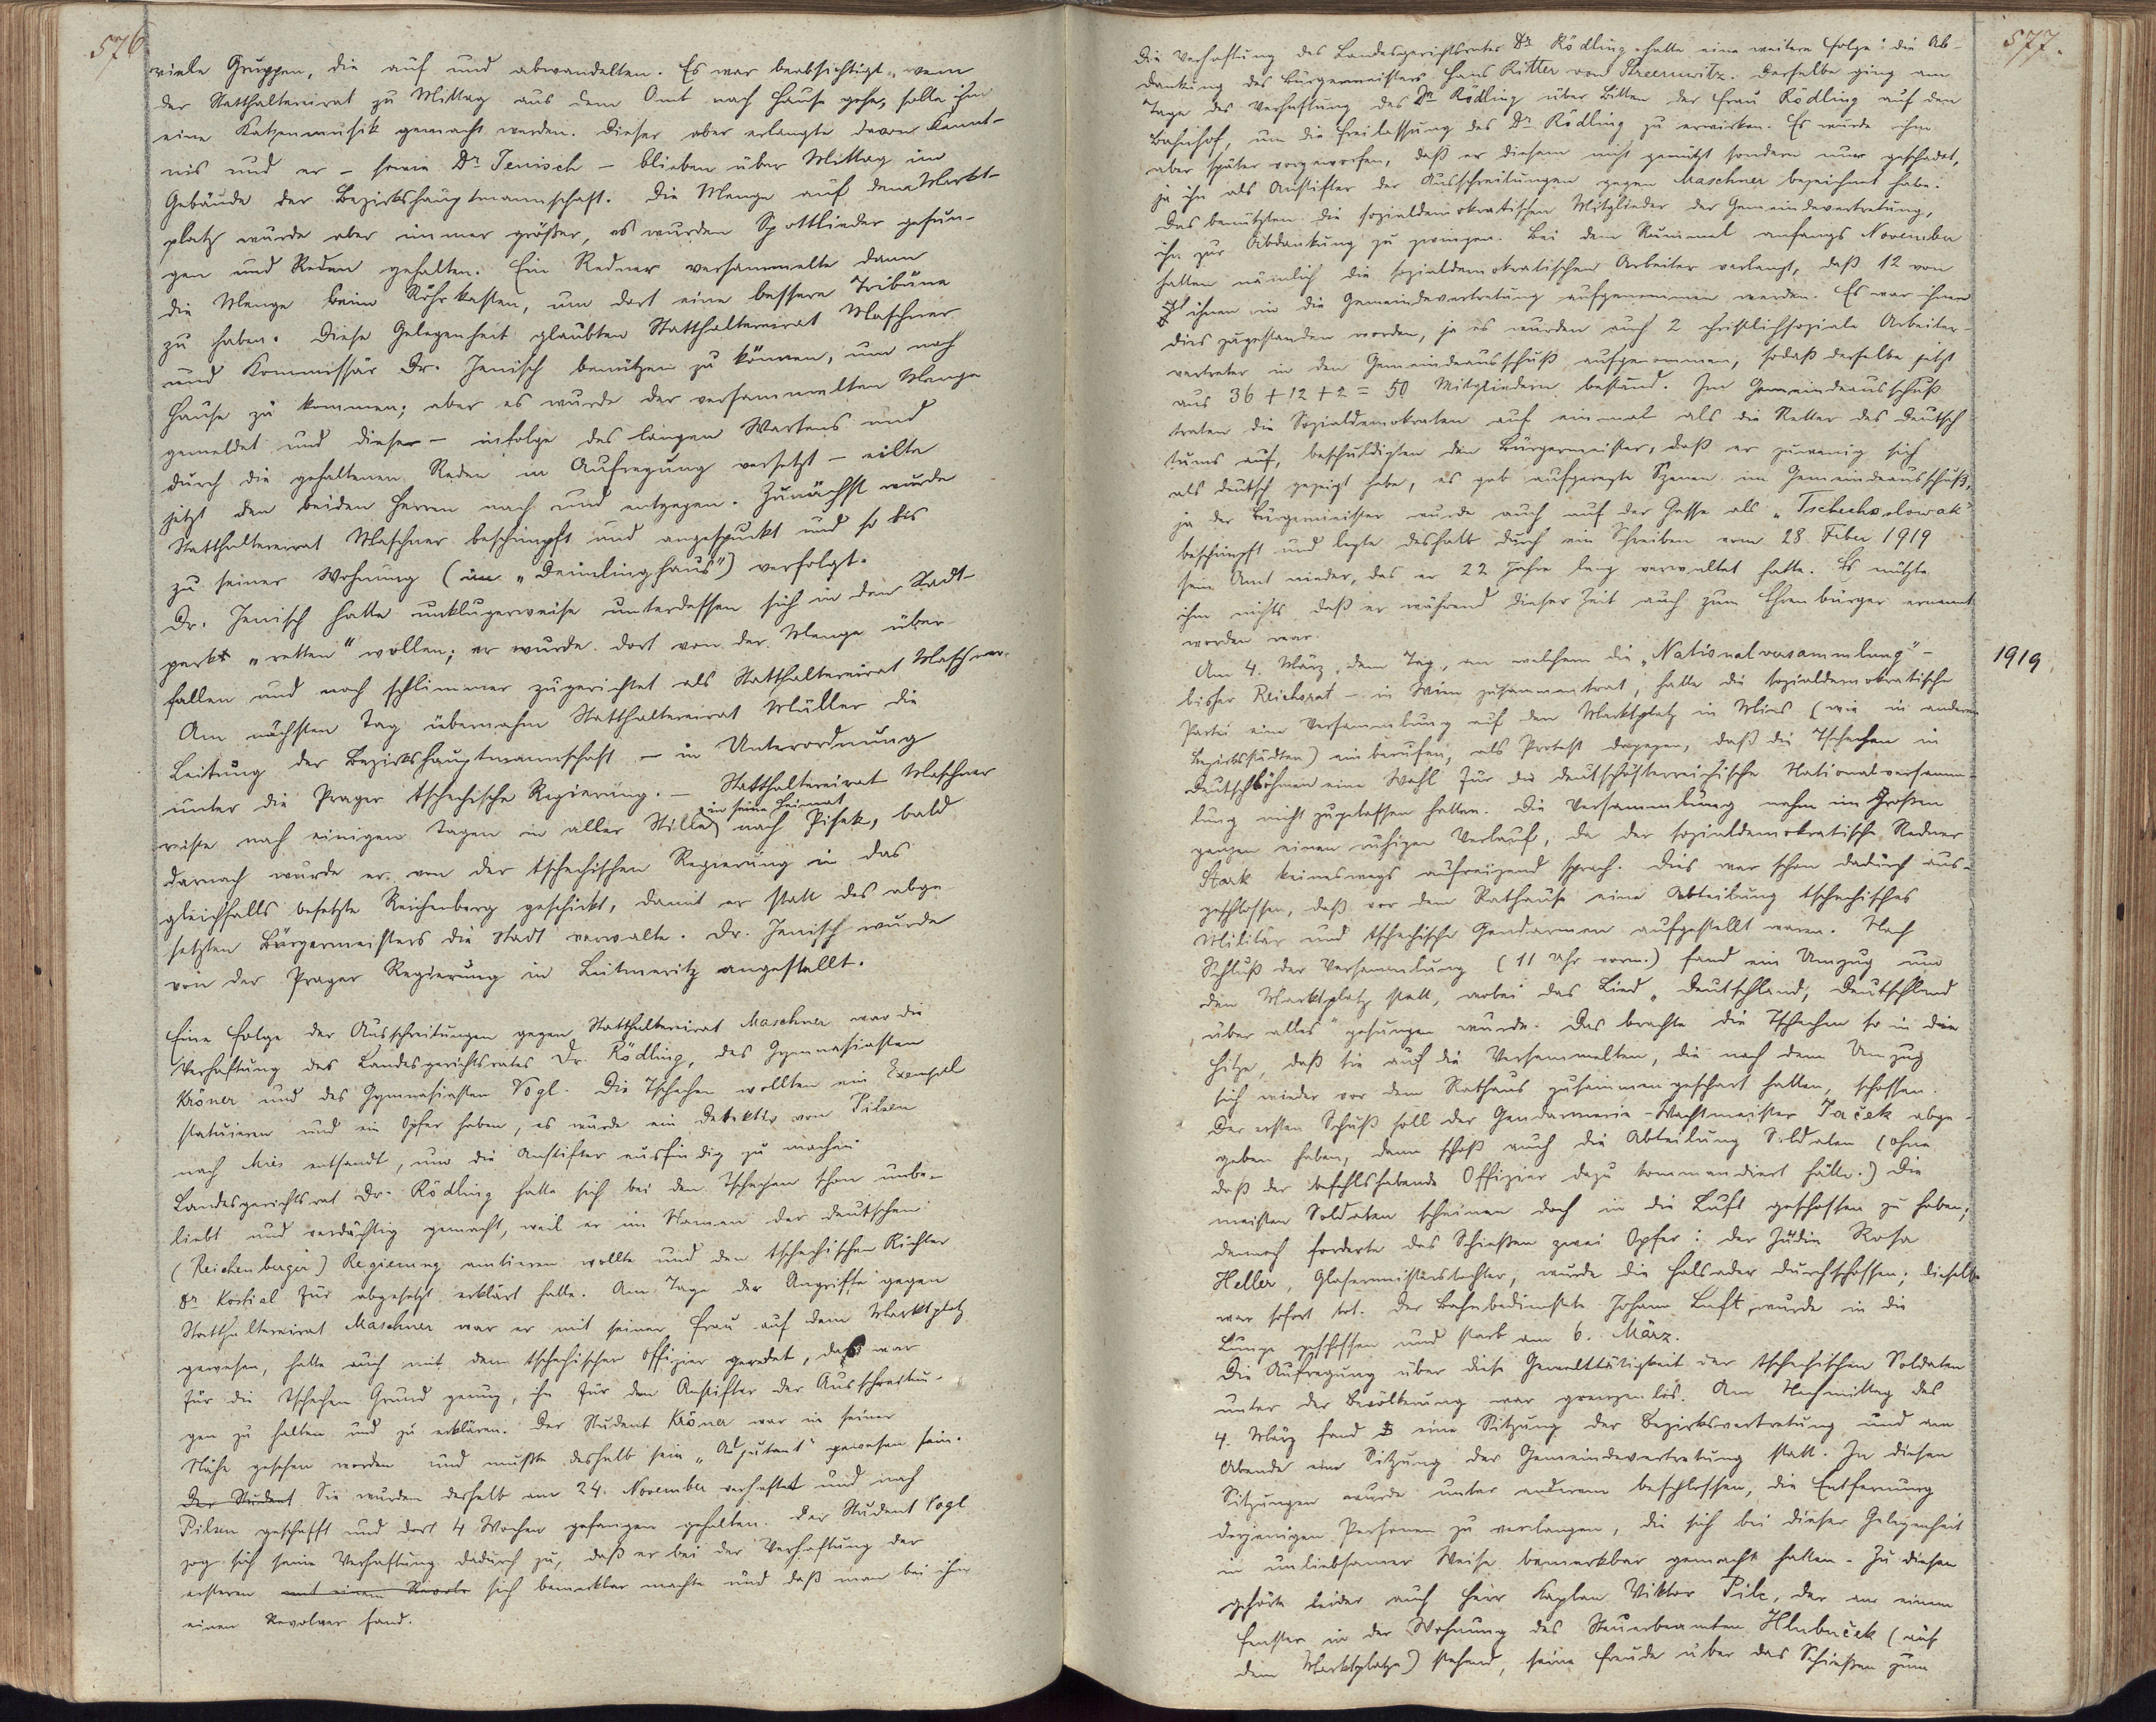 576.
viele Gruppen, die auf und abwandelten. Es war beabsichtigt, wenn
der Statthaltereirat zu Mittag aus dem Amt nach Hause gehe, solle ihm
eine Katzenmusik gemacht werden. Dieser aber erlangte davon Kennt-
nis und er – sowie Dr Jenisch – blieben über Mittag im
Gebäude der Bezirkshauptmannschaft. Die Menge auf dem Markt-
platz wurde aber immer größer, es wurden Spottlieder gesun-
gen und Reden gehalten. Ein Redner versammelte dann
die Menge beim Röhrkasten, um dort eine bessere Tribüne
zu haben. Diese Gelegenheit glaubten Statthaltereirat Maschner
und Kommissär Dr. Jenisch benützen zu können, um nach
Hause zu kommen; aber es wurde der versammelten Menge
gemeldet und dieser – infolge des langen Wartens und
durch die gehaltenen Reden in Aufregung versetzt – eilte
jetzt den beiden Herren nach und entgegen. Zunächst wurde
Statthaltereirat Maschner beschimpft und angespuckt und so bis
zu seiner Wohnung (im „Deimlinghaus") verfolgt.
Dr. Jenisch hatte unklugerweise unterdessen sich in den Stadt-
park „retten" wollen; er wurde dort von der Menge über-
fallen und noch schlimmer zugerichtet als Statthaltereirat Maschner.
Am nächsten Tag übernahm Statthaltereirat Müller die
Leitung der Bezirkshauptmannschaft – in Unterordnung
unter die Prager tschechische Regierung. – Statthaltereirat Maschner
in seine Heimat
reiste nach einigen Tagen in aller Stille nach Pisek, bald
darnach wurde er von der tschechischen Regierung in das
gleichfalls besetzte Reichenberg geschickt, damit er statt des abge-
setzten Bürgermeisters die Stadt verwalte. Dr. Jenisch wurde
von der Prager Regierung in Leitmeritz angestellt.
Eine Folge der Ausschreitungen gegen Statthaltereirat Maschner war die
Verhaftung des Landesgerichtsrates Dr. Rödling, des Gymnasiasten
Kröner und des Gymnasiasten Vogl. Die Tschechen wollten ein Exempel
statuieren und ein Opfer haben, es wurde ein Detektiv von Pilsen
nach Mies entsandt, um die Anstifter ausfindig zu machen.
Landesgerichtsrat Dr. Rödling hatte sich bei den Tschechen schon unbe-
liebt und verdächtig gemacht, weil er im Namen der deutschen
(Reichenberger) Regierung amtieren wollte und den tschechischen Richter
Dr Kostial für abgesetzt erklärt hatte. Am Tage der Angriffe gegen
Statthaltereirat Maschner war er mit seiner Frau auf dem Marktplatz
gewesen, hatte auch mit dem tschechischen Offizier geredet, das war
für die Tschechen Grund genug, ihn für den Anstifter der Ausschreitun-
gen zu halten und zu erklären. Der Student Kröner war in seiner
Nähe gesehen worden und mußte deshalb sein „Adjutant" gewesen sein.
Der Student Sie wurden deshalb am 24. November verhaftet und nach
Pilsen geschafft und dort 4 Wochen gefangen gehalten. Der Student Vogl
zog sich seine Verhaftung dadurch zu, daß er bei der Verhaftung der
ersteren mit einem Revolv sich bemerkbar machte und daß man bei ihm
einen Revolver fand.
577.
Die Verhaftung des Landesgerichtsrates Dr Rödling hatte eine weitere Folge: die Ab-
dankung des Bürgermeisters Hans Ritter von Streeruwitz. Derselbe ging am
Tage der Verhaftung des Dr Rödling über Bitten der Frau Rödling auf den
Bahnhof, um die Freilassung des Dr Rödling zu erwirken. Es wurde ihm
aber später vorgeworfen, daß er diesem nicht genützt sondern nur geschadet,
ja ihn als Anstifter der Ausschreitungen gegen Maschner bezeichnet habe.
Das benützten die sozialdemokratischen Mitglieder der Gemeindevertretung,
ihn zur Abdankung zu zwingen. Bei dem Rummel anfangs November
hatten nämlich die sozialdemokratischen Arbeiter verlangt, daß 12 von
ihnen in die Gemeindevertretung aufgenommen werden. Es war ihnen
dies zugestanden worden, ja es wurden auch 2 christlichsoziale Arbeiter-
vertreter in den Gemeindeausschuß aufgenommen, sodaß derselbe jetzt
aus 36 + 12 + 2 = 50 Mitgliedern bestand. Im Gemeindeausschuß
traten die Sozialdemokraten auf einmal als die Retter des Deutsch-
tums auf, beschuldigten den Bürgermeister, daß er zuwenig sich
als deutsch gezeigt habe, es gab aufgeregte Szenen im Gemeindeausschuß,
ja der Bürgermeister wurde auch auf der Gasse als „Tschechoslowak"
beschimpft und legte deshalb durch ein Schreiben vom 28. Feber 1919
sein Amt nieder, das er 22 Jahre lang verwaltet hatte. Es nützte
ihm nichts, daß er während dieser Zeit auch zum Ehrenbürger ernannt
worden war.
1919.
Am 4. März, dem Tag, an welchem die „Nationalversammlung" –
bisher Reichsrat – in Wien zusammentrat, hatte die sozialdemokratische
Partei eine Versammlung auf den Marktplatz in Mies (wie in anderen
Bezirksstädten) einberufen, als Protest dagegen, daß die Tschechen in
Deutschböhmen eine Wahl für die deutschösterreichische Nationalversamm-
lung nicht zugelassen hatten. Die Versammlung nahm im Großen
ganzen einen ruhigen Verlauf, da der sozialdemokratische Redner
Stark keineswegs aufreizend sprach. Dies war schon dadurch aus-
geschlossen, daß vor dem Rathause eine Abteilung tschechisches
Militär und tschechische Gendarmen aufgestellt waren. Nach
Schluß der Versammlung (11 Uhr vorm.) fand ein Umzug um
den Marktplatz statt, wobei das Lied „Deutschland, Deutschland
über alles" gesungen wurde. Das brachte die Tschechen so in die
Hitze, daß sie auf die Versammelten, die nach dem Umzug
sich wieder vor dem Rathaus zusammengeschart hatten, schossen.
Den ersten Schuß soll der Gendarmerie-Wachtmeister Jaček abge-
geben haben, dann schoß auch die Abteilung Soldaten (ohne
daß der befehlshabende Offizier dazu kommandiert hätte.) Die
meisten Soldaten scheinen doch in die Luft geschossen zu haben;
dennoch forderte das Schießen zwei Opfer: der Jüdin Rosa
Heller, Glasermeisterstochter, wurde die Halsader durchschossen; dieselbe
war sofort tot. Der Bahnbedienstete Johann Luft wurde in die
Lunge geschossen und starb am 6. März.
Die Aufregung über diese Gewalttätigkeit der tschechischen Soldaten
unter der Bevölkerung war grenzenlos. Am Nachmittag des
4. März fand eine Sitzung der Bezirksvertretung und am
Abende eine Sitzung der Gemeindevertretung statt. In diesen
Sitzungen wurde unter anderem beschlossen, die Entfernung
derjenigen Personen zu verlangen, die sich bei dieser Gelegenheit
in unliebsamer Weise bemerkbar gemacht hatten. Zu diesen
gehörte leider auch Herr Kaplan Viktor Pilc, der an einem
Fenster in der Wohnung des Steuerbeamten Hlubuček (auf
dem Marktplatze) stehend, seine Freude über das Schießen zum